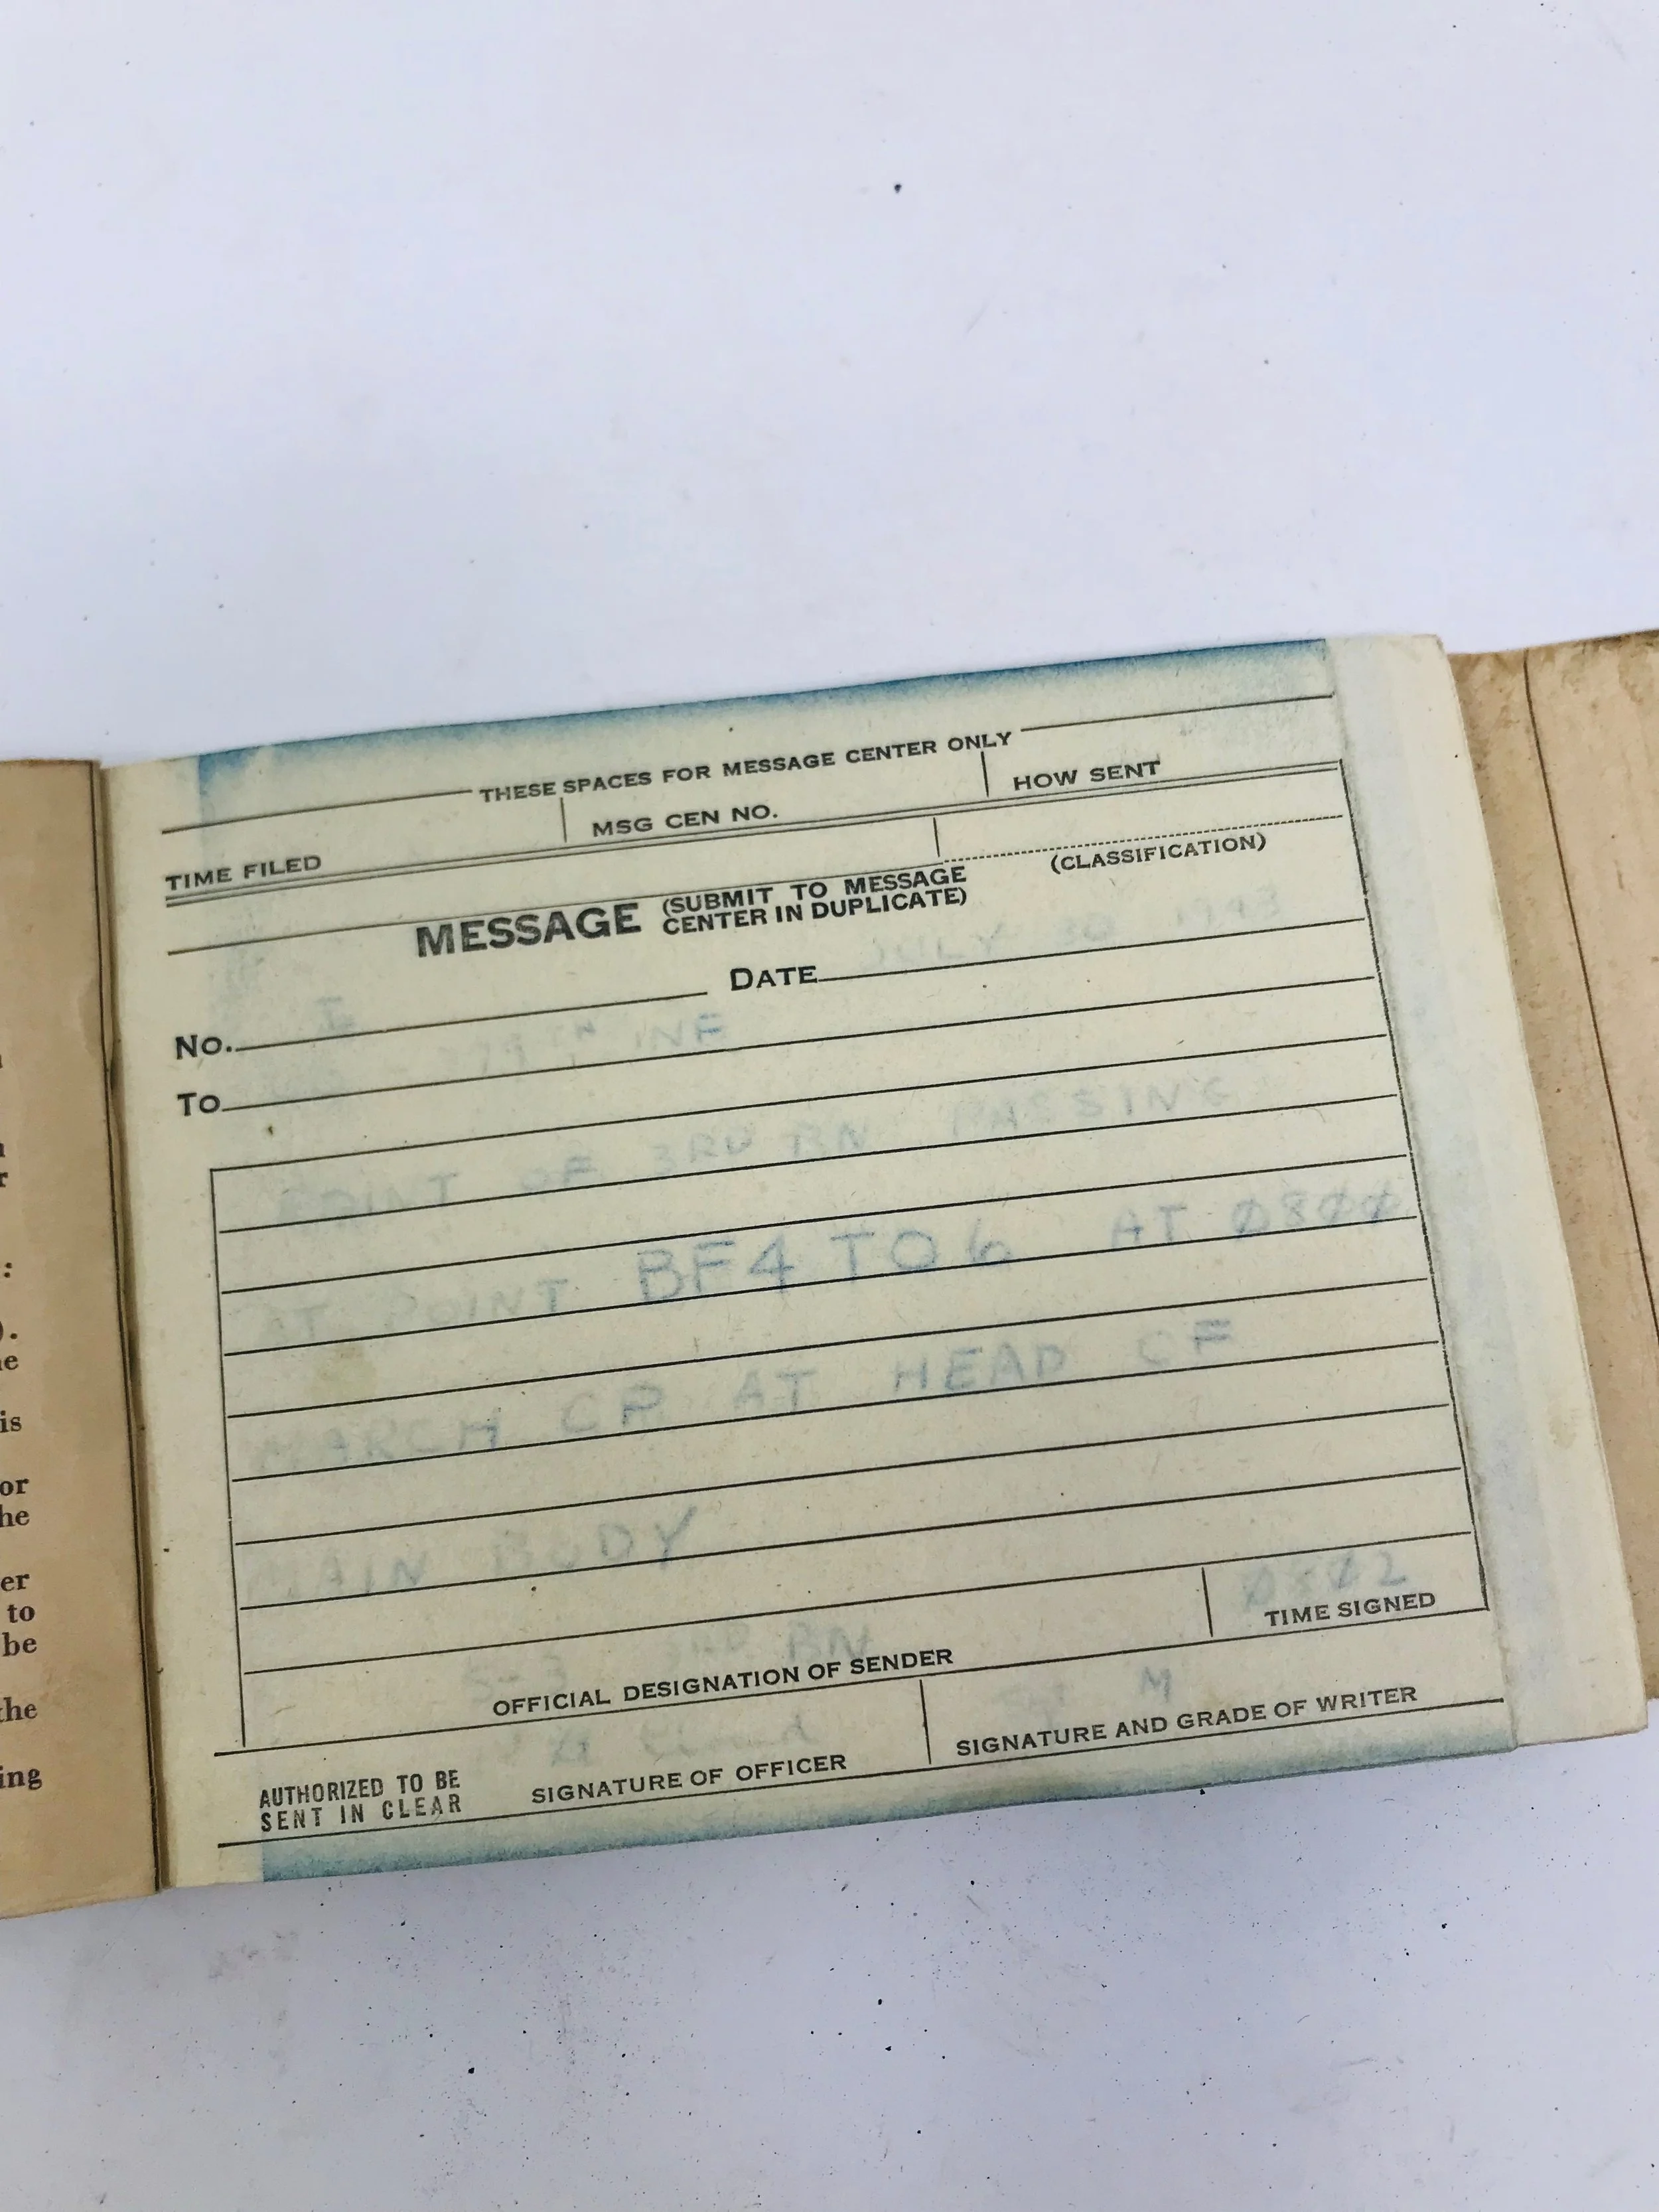 THESE SPACES FOR MESSAGE CENTER ONLY
TIME FILED MSG CEN NO. HOW SENT
(CLASSIFICATION)
MESSAGE (SUBMIT TO MESSAGE
CENTER IN DUPLICATE)
No. DATE JULY 30 1943
To 379TH INF
POINT OF 3RD BN PASSING
AT POINT BF4 TO6 AT 0800
MARCH CP AT HEAD OF
MAIN BODY
S-3 3RD BN 0802
OFFICIAL DESIGNATION OF SENDER TIME SIGNED
AUTHORIZED TO BE
SENT IN CLEAR
SIGNATURE OF OFFICER SIGNATURE AND GRADE OF WRITER
:
is
or
he
er
to
be
the
ing